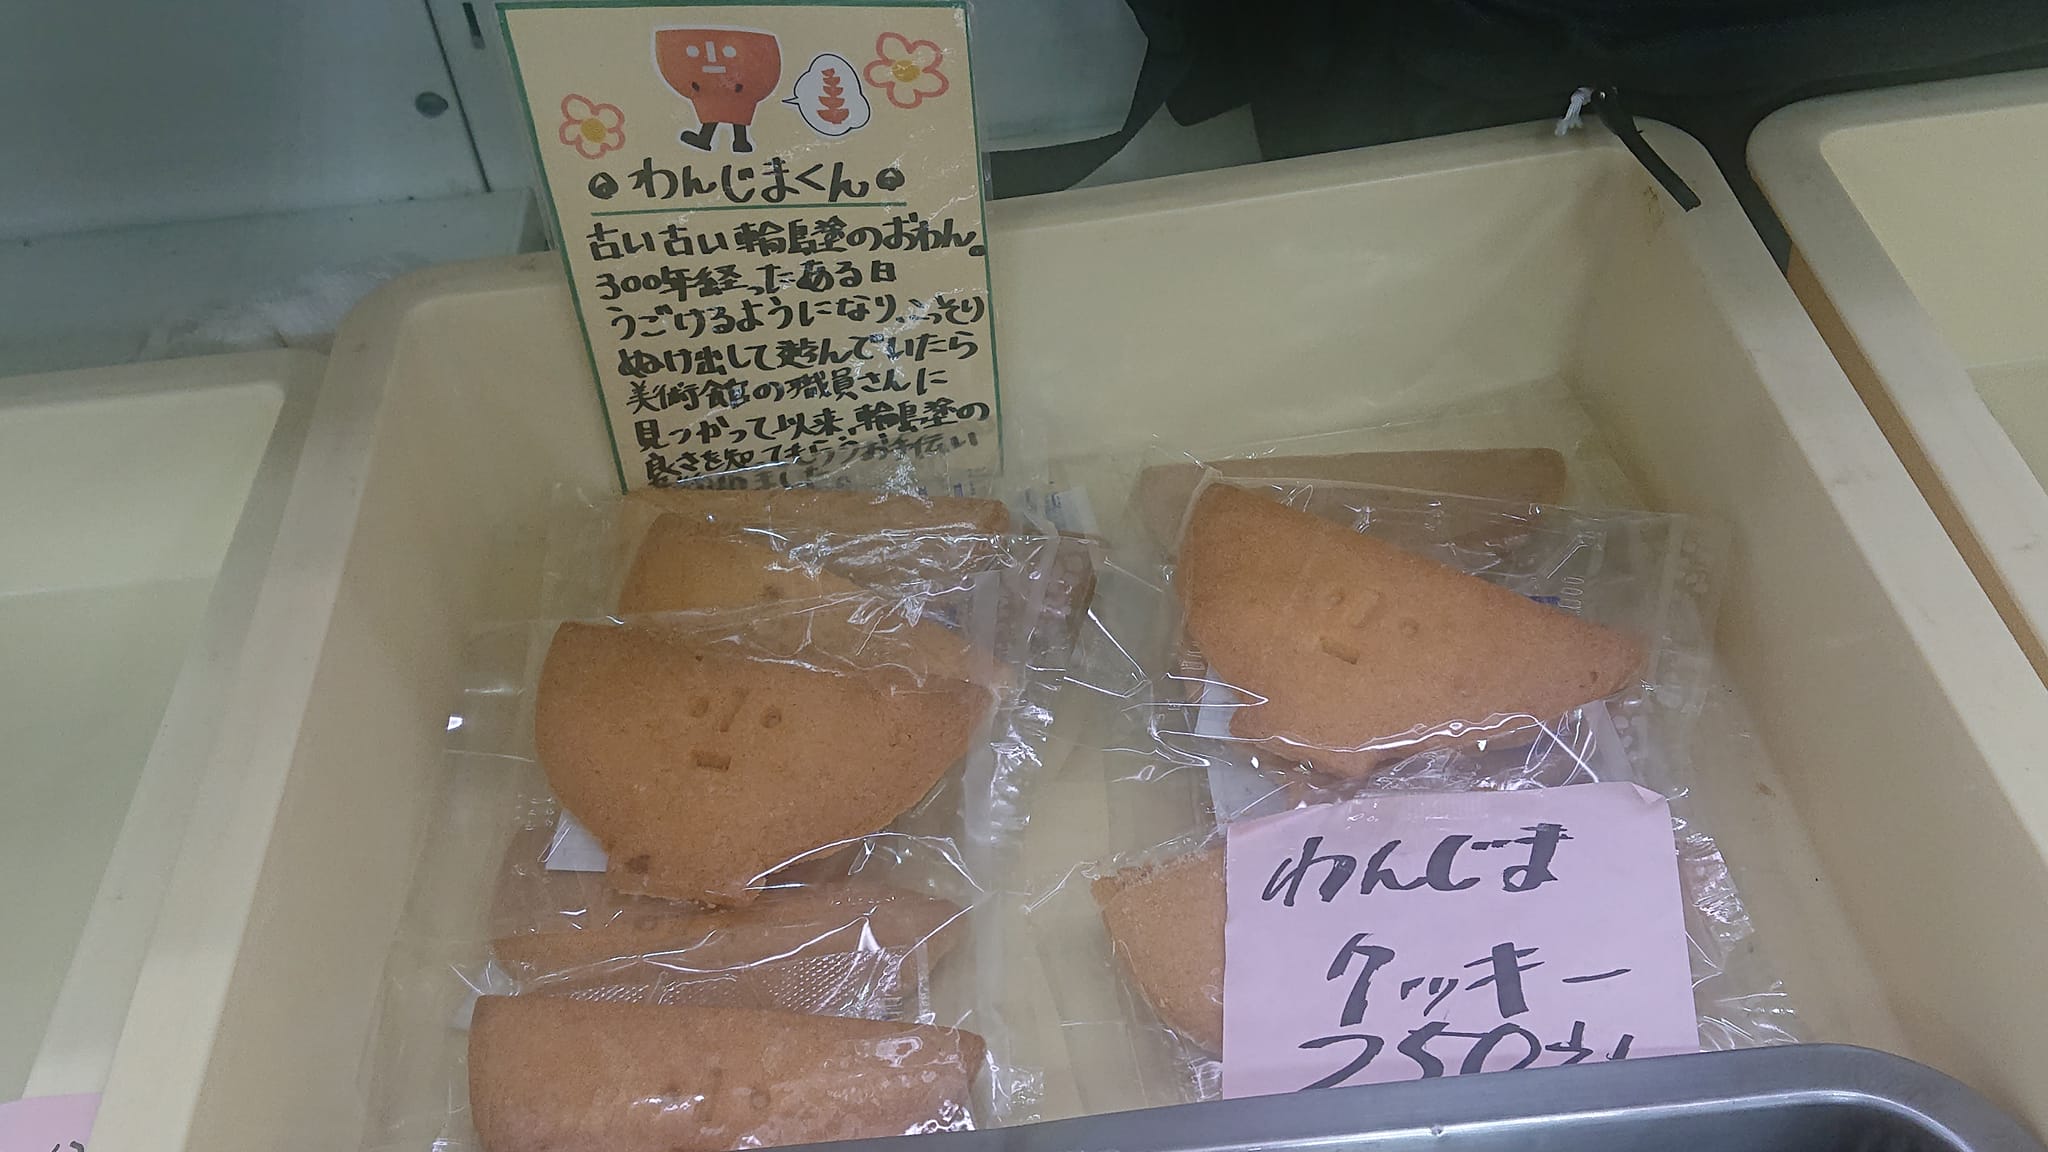 わんじまくん
古い古い輪島塗のおわん。
300年経ったある日
うごけるようになり、こっそり
ぬけ出して遊んでいたら
美術館の職員さんに
見つかって以来、輪島塗の
良さを知ってもらうお手伝い
ました。
わんじま
クッキー
250